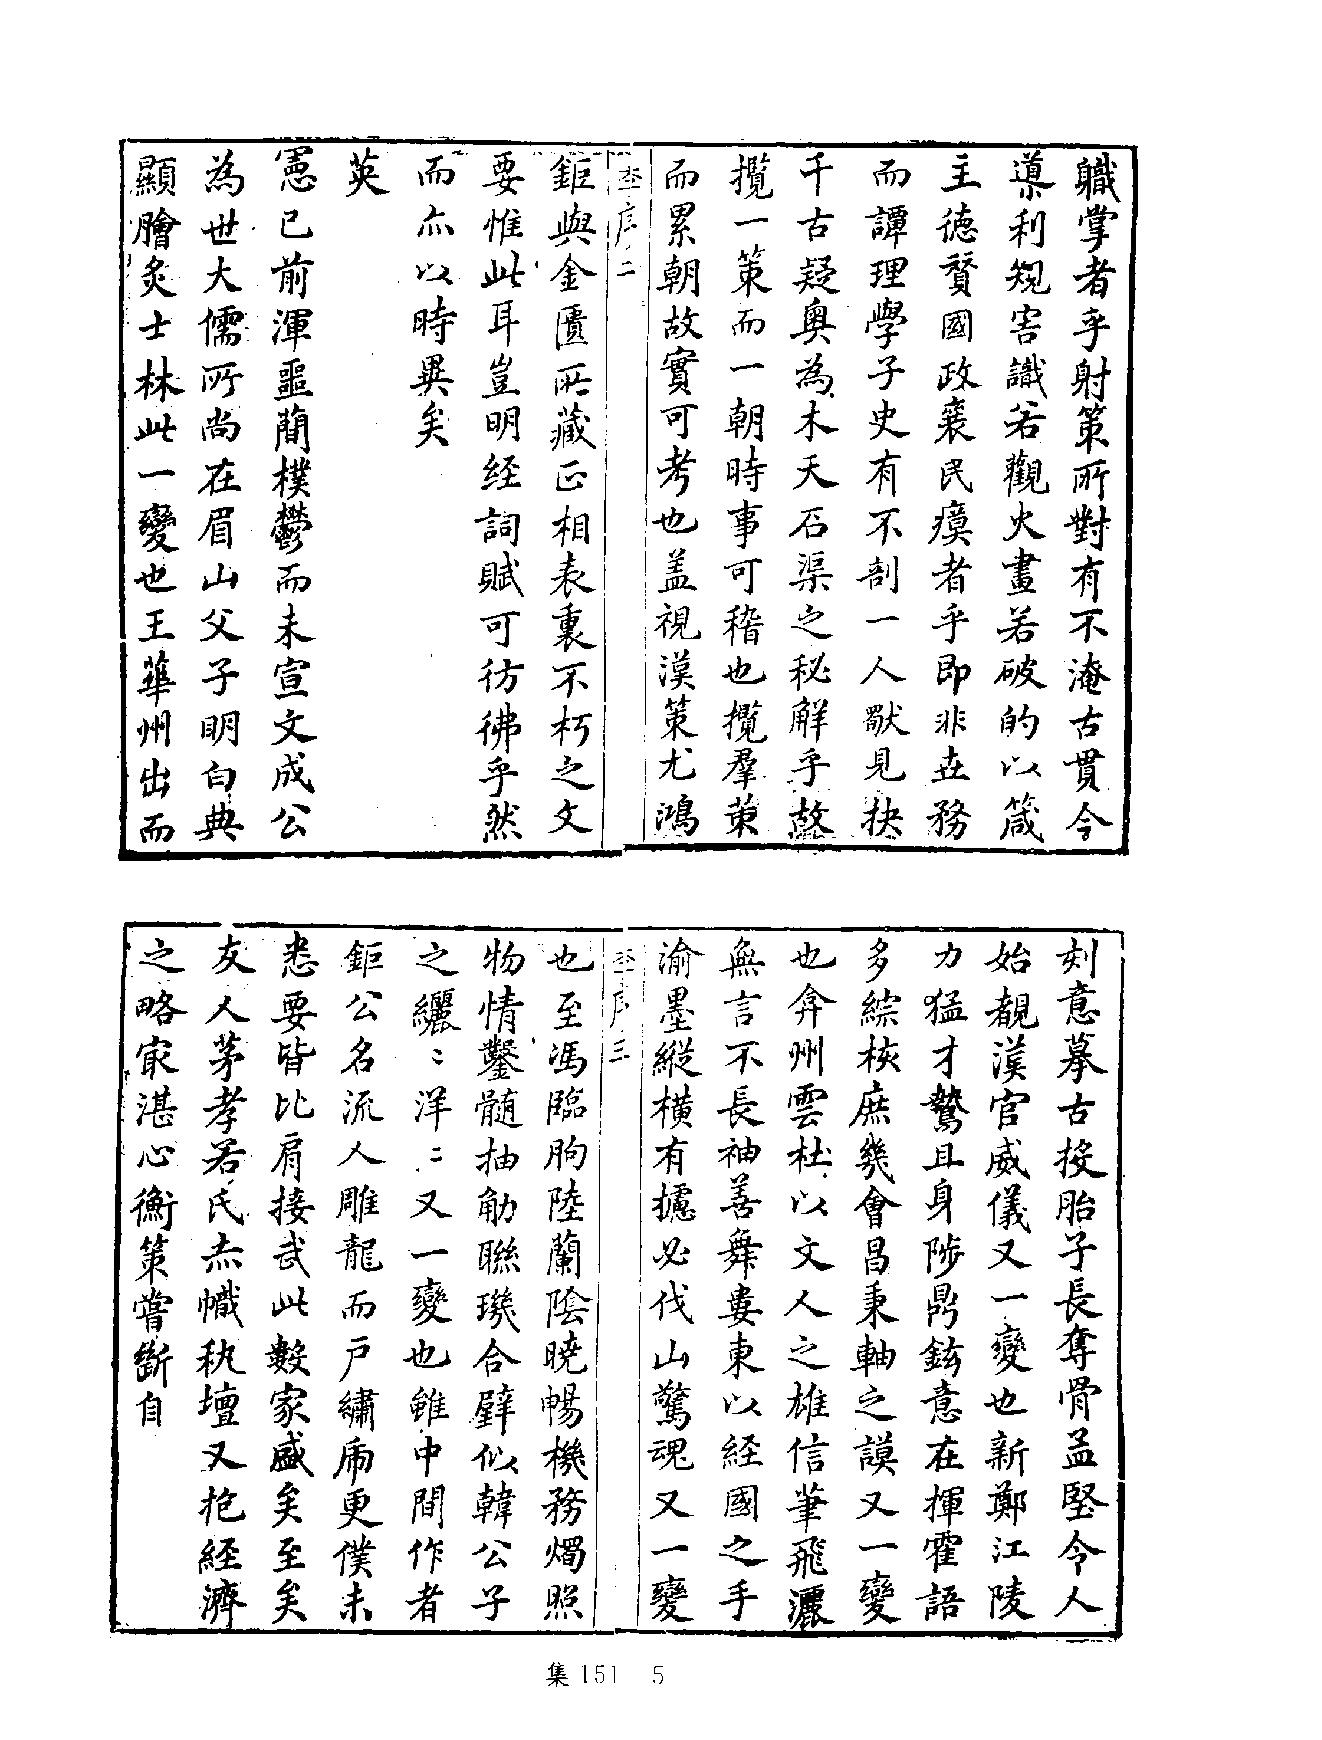 職掌者乎射策所對有不淹古貫今
導利規害識若觀火畫若破的以箴
主德贊國政襄民瘼者乎即非世務
而譚理學子史有不剖一人猷見抉
千古疑奧為木天石渠之秘解乎故
攬一策而一朝時事可稽也攬羣策
而累朝故實可考也盖視漢策尤鴻
李序二
鉅與金匱所藏正相表裏不朽之文
要惟此耳豈明经詞賦可彷彿乎然
而亦以時異矣
英
憲已前渾噩蕑樸鬱而未宣文成公
為世大儒所尚在眉山父子明白典
顯膾炙士林此一變也王華州出而
刻意摹古投胎子長奪骨孟堅令人
始覩漢官威儀又一變也新鄭江陵
力猛才鷙且身陟鼎鉉意在揮霍語
多綜核庶幾會昌秉軸之謨又一變
也弇州雲杜以文人之雄信筆飛灑
無言不長袖善舞婁東以經國之手
渝墨縱橫有攄必伐山驚魂又一變
李序三
也至馮臨朐陸蘭陰曉暢機務燭照
物情鑿髄抽觔聯璣合璧似韓公子
之纚〻洋〻又一變也雖中間作者
鉅公名流人雕龍而戸繡虎更僕未
悉要皆比肩接武此數家盛矣至矣
友人茅孝若氏赤幟執壇又抱經濟
之略冣湛心衡策嘗斷自
集 151 5